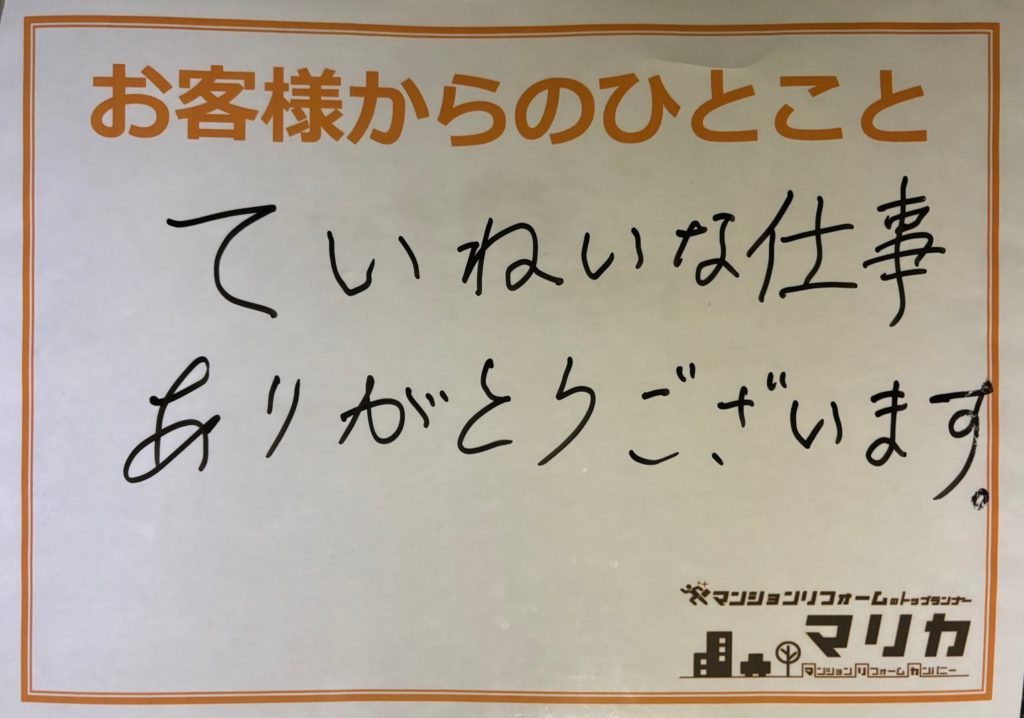 お客様からのひとこと
ていねいな仕事
ありがとうございます。
マンションリフォームのトップランナー
マリカ
マンションリフォームカンパニー